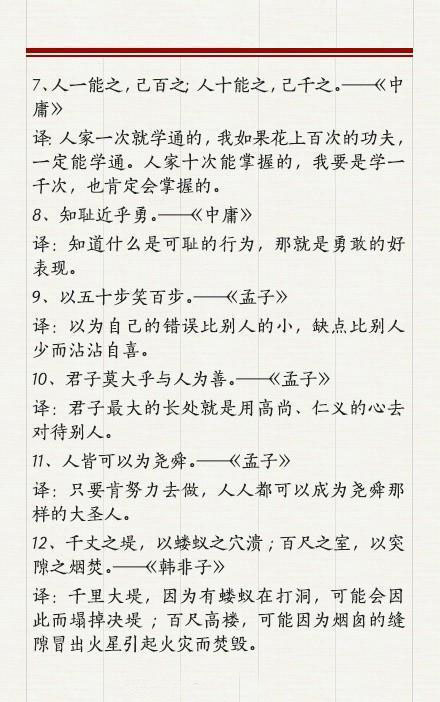 7、人一能之,己百之; 人十能之,己千之。——《中
庸》
译: 人家一次就学通的,我如果花上百次的功夫,
一定能学通。人家十次能掌握的,我要是学一
千次,也肯定会掌握的。
8、知耻近乎勇。——《中庸》
译:知道什么是可耻的行为,那就是勇敢的好
表现。
9、以五十步笑百步。——《孟子》
译:以为自己的错误比别人的小,缺点比别人
少而沾沾自喜。
10、君子莫大乎与人为善。——《孟子》
译:君子最大的长处就是用高尚、仁义的心去
对待别人。
11、人皆可以为尧舜。——《孟子》
译:只要肯努力去做,人人都可以成为尧舜那
样的大圣人。
12、千丈之堤,以蝼蚁之穴溃;百尺之室,以突
隙之烟焚。——《韩非子》
译:千里大堤,因为有蝼蚁在打洞,可能会因
此而塌掉决堤;百尺高楼,可能因为烟囱的缝
隙冒出火星引起火灾而焚毁。